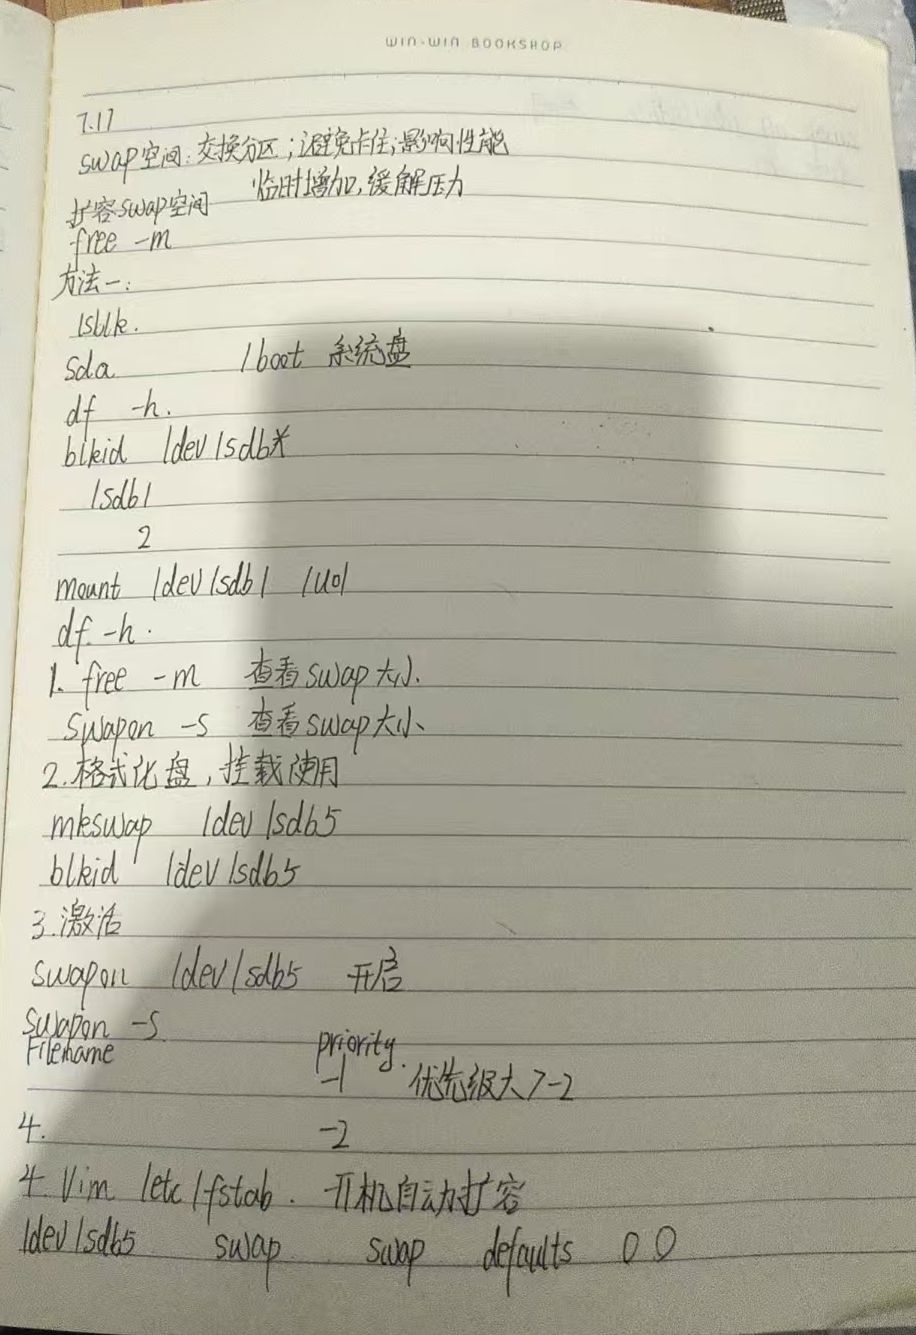 WIN-WIN BOOKSHOP
7.17
swap空间:交换分区;避免卡住;影响性能
临时增加,缓解压力
扩容swap空间
free -m
方法一:
lsblk.
sda /boot 系统盘
df -h.
blkid /dev/sdb*
/sdb1
2
mount /dev/sdb1 /u01
df -h.
1. free -m 查看swap大小.
swapon -s 查看swap大小、
2.格式化盘,挂载使用
mkswap /dev/sdb5
blkid /dev/sdb5
3.激活
swapon /dev/sdb5 开启
swapon -s.
Filename priority.
-1 优先级大于-2
4. -2
4. Vim /etc/fstab. 开机自动扩容
/dev/sdb5 swap swap defaults 0 0